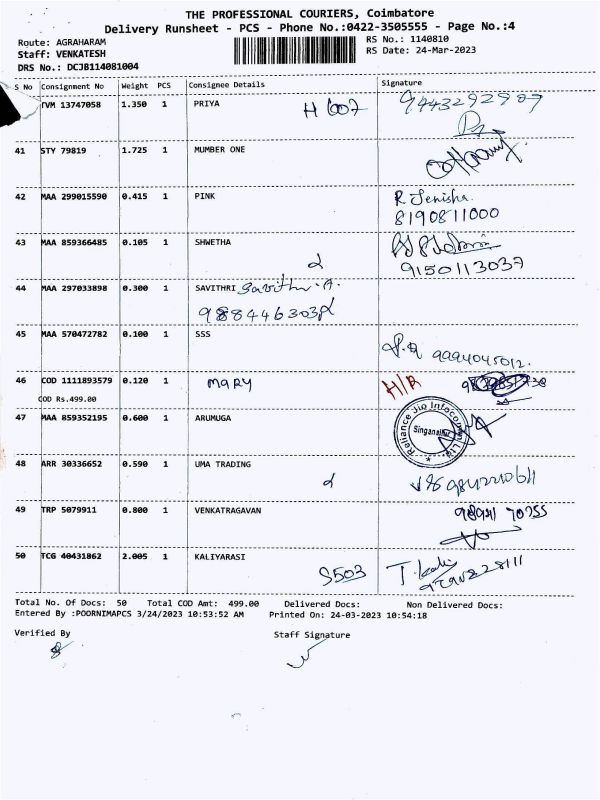 THE PROFESSIONAL COURIERS, Coimbatore
Delivery Runsheet - PCS - Phone No.:0422-3505555 - Page No.:4
Route: AGRAHARAM
Staff: VENKATESH
DRS No.: DCJB114081004
RS No.: 1140810
RS Date: 24-Mar-2023
S No Consignment No Weight PCS Consignee Details Signature
TVM 13747058 1.350 1 PRIYA H 607 9443292907
41 STY 79819 1.725 1 MUMBER ONE
42 MAA 299015590 0.415 1 PINK R Jenisha
8190811000
43 MAA 859366485 0.105 1 SHWETHA
9150113037
44 MAA 297033898 0.300 1 SAVITHRI Savithri.A.
45 MAA 570472782 0.100 1 SSS
9994045012.
46 COD 1111893579 0.120 1 MARY H/R
COD Rs.499.00
47 MAA 859352195 0.600 1 ARUMUGA Reliance Jio Infocomm Ltd. Singanallur
48 ARR 30336652 0.590 1 UMA TRADING
49 TRP 5079911 0.800 1 VENKATRAGAVAN
50 TCG 40431862 2.005 1 KALIYARASI S503
Total No. Of Docs: 50 Total COD Amt: 499.00 Delivered Docs: Non Delivered Docs:
Entered By :POORNIMAPCS 3/24/2023 10:53:52 AM Printed On: 24-03-2023 10:54:18
Verified By Staff Signature